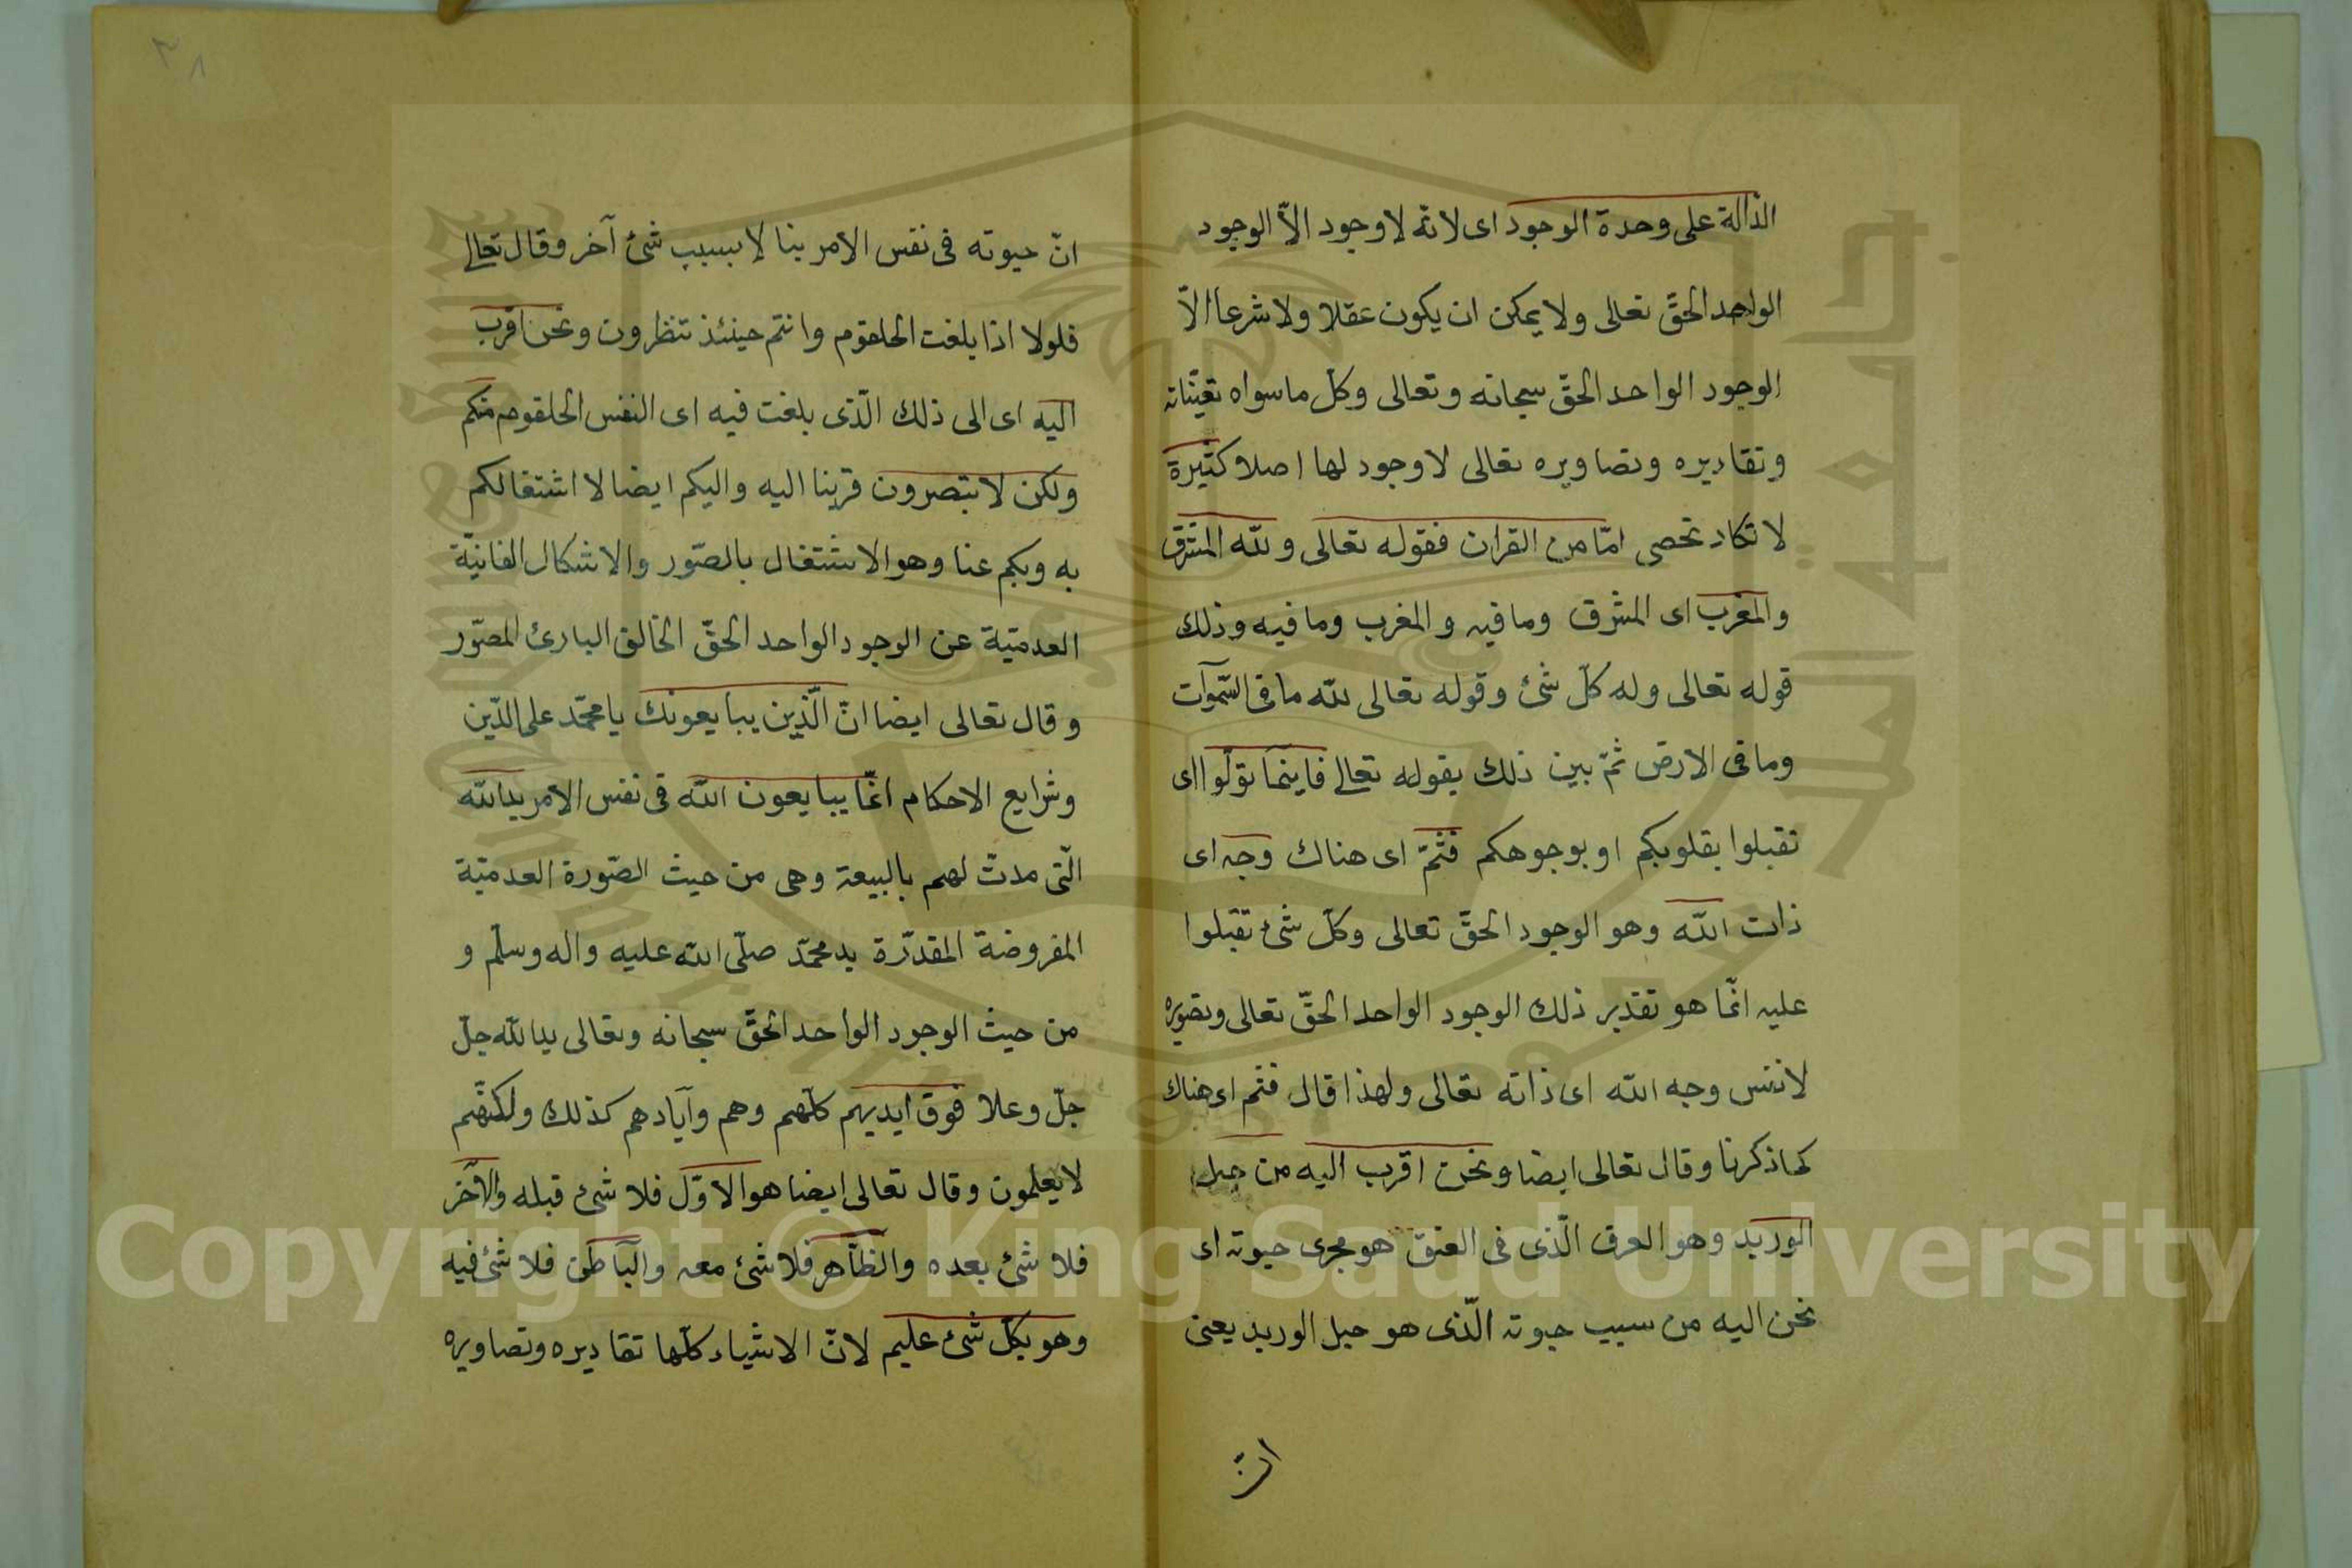 الدالة على وحدة الوجود اى لانه لا وجود الاّ الوجود
الواحد الحقّ تعالى ولا يمكن ان يكون عقلا ولا شرعا الاّ
الوجود الواحد الحقّ سبحانه وتعالى وكلّ ما سواه تعيّناته
وتقاديره وتصاويره تعالى لا وجود لها اصلا كثيرة
لا تكاد تحصى امّا من القران فقوله تعالى ولله المشرق
والمغرب اى المشرق وما فيه والمغرب وما فيه وذلك
قوله تعالى وله كلّ شئ وقوله تعالى لله ما فى السّموات
وما فى الارض ثمّ بين ذلك بقوله تعالى فاينما تولّوا اى
تقبلوا بقلوبكم او بوجوهكم فثمّ اى هناك وجه اى
ذات الله وهو الوجود الحقّ تعالى وكلّ شئ تقبلوا
عليه انّما هو تقدير ذلك الوجود الواحد الحقّ تعالى وتصويره
لا نفس وجه الله اى ذاته تعالى ولهذا قال فثم اى هناك
كما ذكرنا وقال تعالى ايضا ونحن اقرب اليه من حبل
الوريد وهو العرق الّذى فى العنق هو مجرى حيوته اى
نحن اليه من سبب حيوته الّذى هو حبل الوريد يعنى
انّ
٣٨
انّ حيوته فى نفس الامر بنا لا بسبب شئ آخر وقال تعالى
فلولا اذا بلغت الحلقوم وانتم حينئذ تنظرون ونحن اقرب
اليه اى الى ذلك الّذى بلغت فيه اى النفس الحلقوم منكم
ولكن لا تبصرون قربنا اليه واليكم ايضا لا اشتغالكم
به وبكم عنا وهو الاشتغال بالصّور والاشكال الفانيّة
العدميّة عن الوجود الواحد الحقّ الخالق البارئ المصوّر
وقال تعالى ايضا انّ الّذين يبايعونك يا محمّد على الدّين
وشرايع الاحكام انّما يبايعون الله فى نفس الامر يد الله
الّتى مدتّ لهم بالبيعة وهى من حيث الصّورة العدميّة
المفروضة المقدّرة يد محمّد صلّى الله عليه واله وسلّم و
من حيث الوجود الواحد الحقّ سبحانه وتعالى يد الله جلّ
جلّ وعلا فوق ايديهم كلّهم وهم وآيادهم كذلك ولكنّهم
لا يعلمون وقال تعالى ايضا هو الاوّل فلا شئ قبله والآخر
فلا شئ بعده والظّاهر فلا شئ معه والباطن فلا شئ فيه
وهو بكلّ شئ عليم لانّ الاشياء كلّها تقاديره وتصاويره
جامعة الملك سعود
King Saud University
1957
Copyright © King Saud University